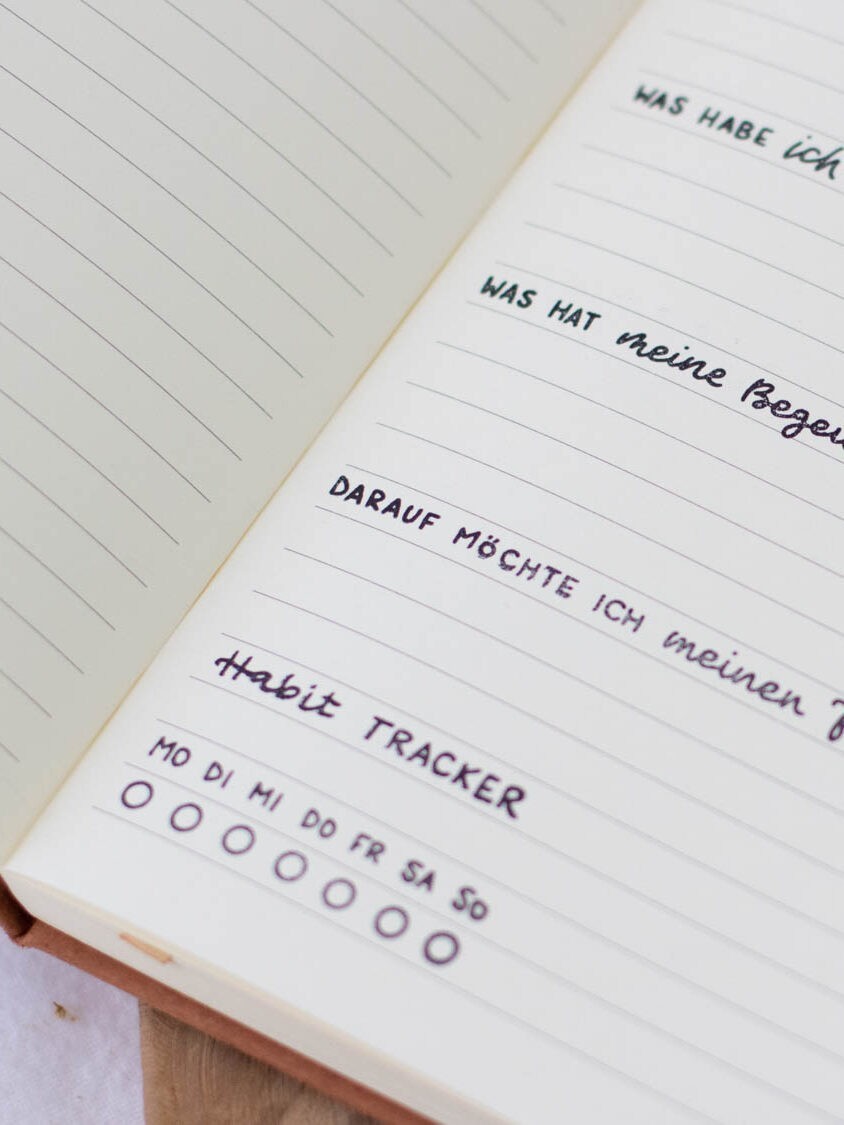 WAS HABE ich
WAS HAT meine
DARAUF MÖCHTE ICH meinen
Habit TRACKER
MO DI MI DO FR SA SO